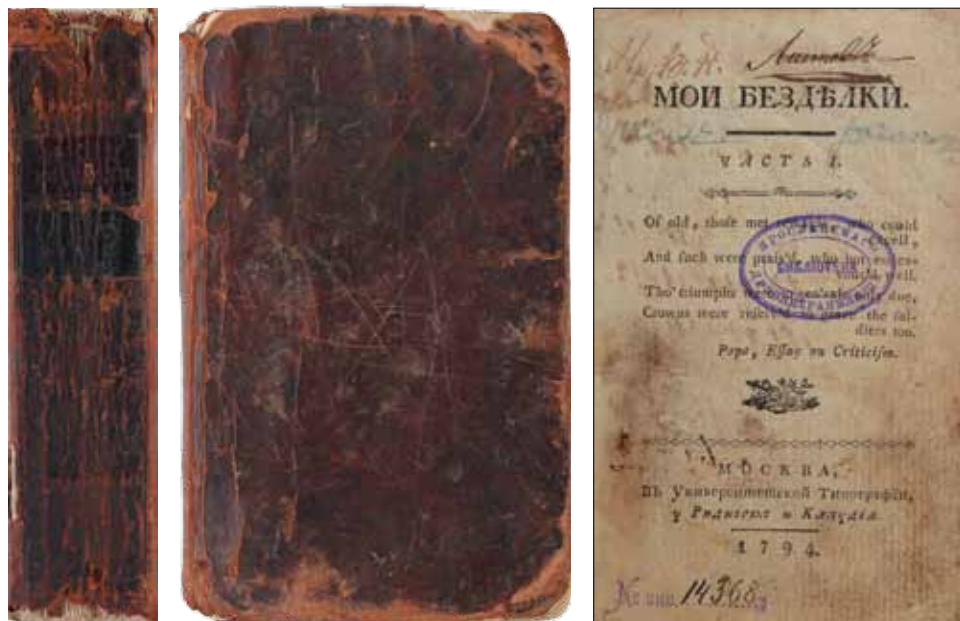 МОИ БЕЗДѢЛКИ.
ЧАСТЬ I.
Of old, thoſe met who could
excell,
And ſuch were prais'd, who but endea-
vour'd well.
Tho' triumphs were due,
Crowns were reſerv'd to grace the ſol-
diers too.
Pope, Eſſay on Criticiſm.
БИБЛИОТЕКА
МОСКВА,
Въ Университетской Типографіи,
у Ридигера и Клаудія
1794.
№ инв. 14368